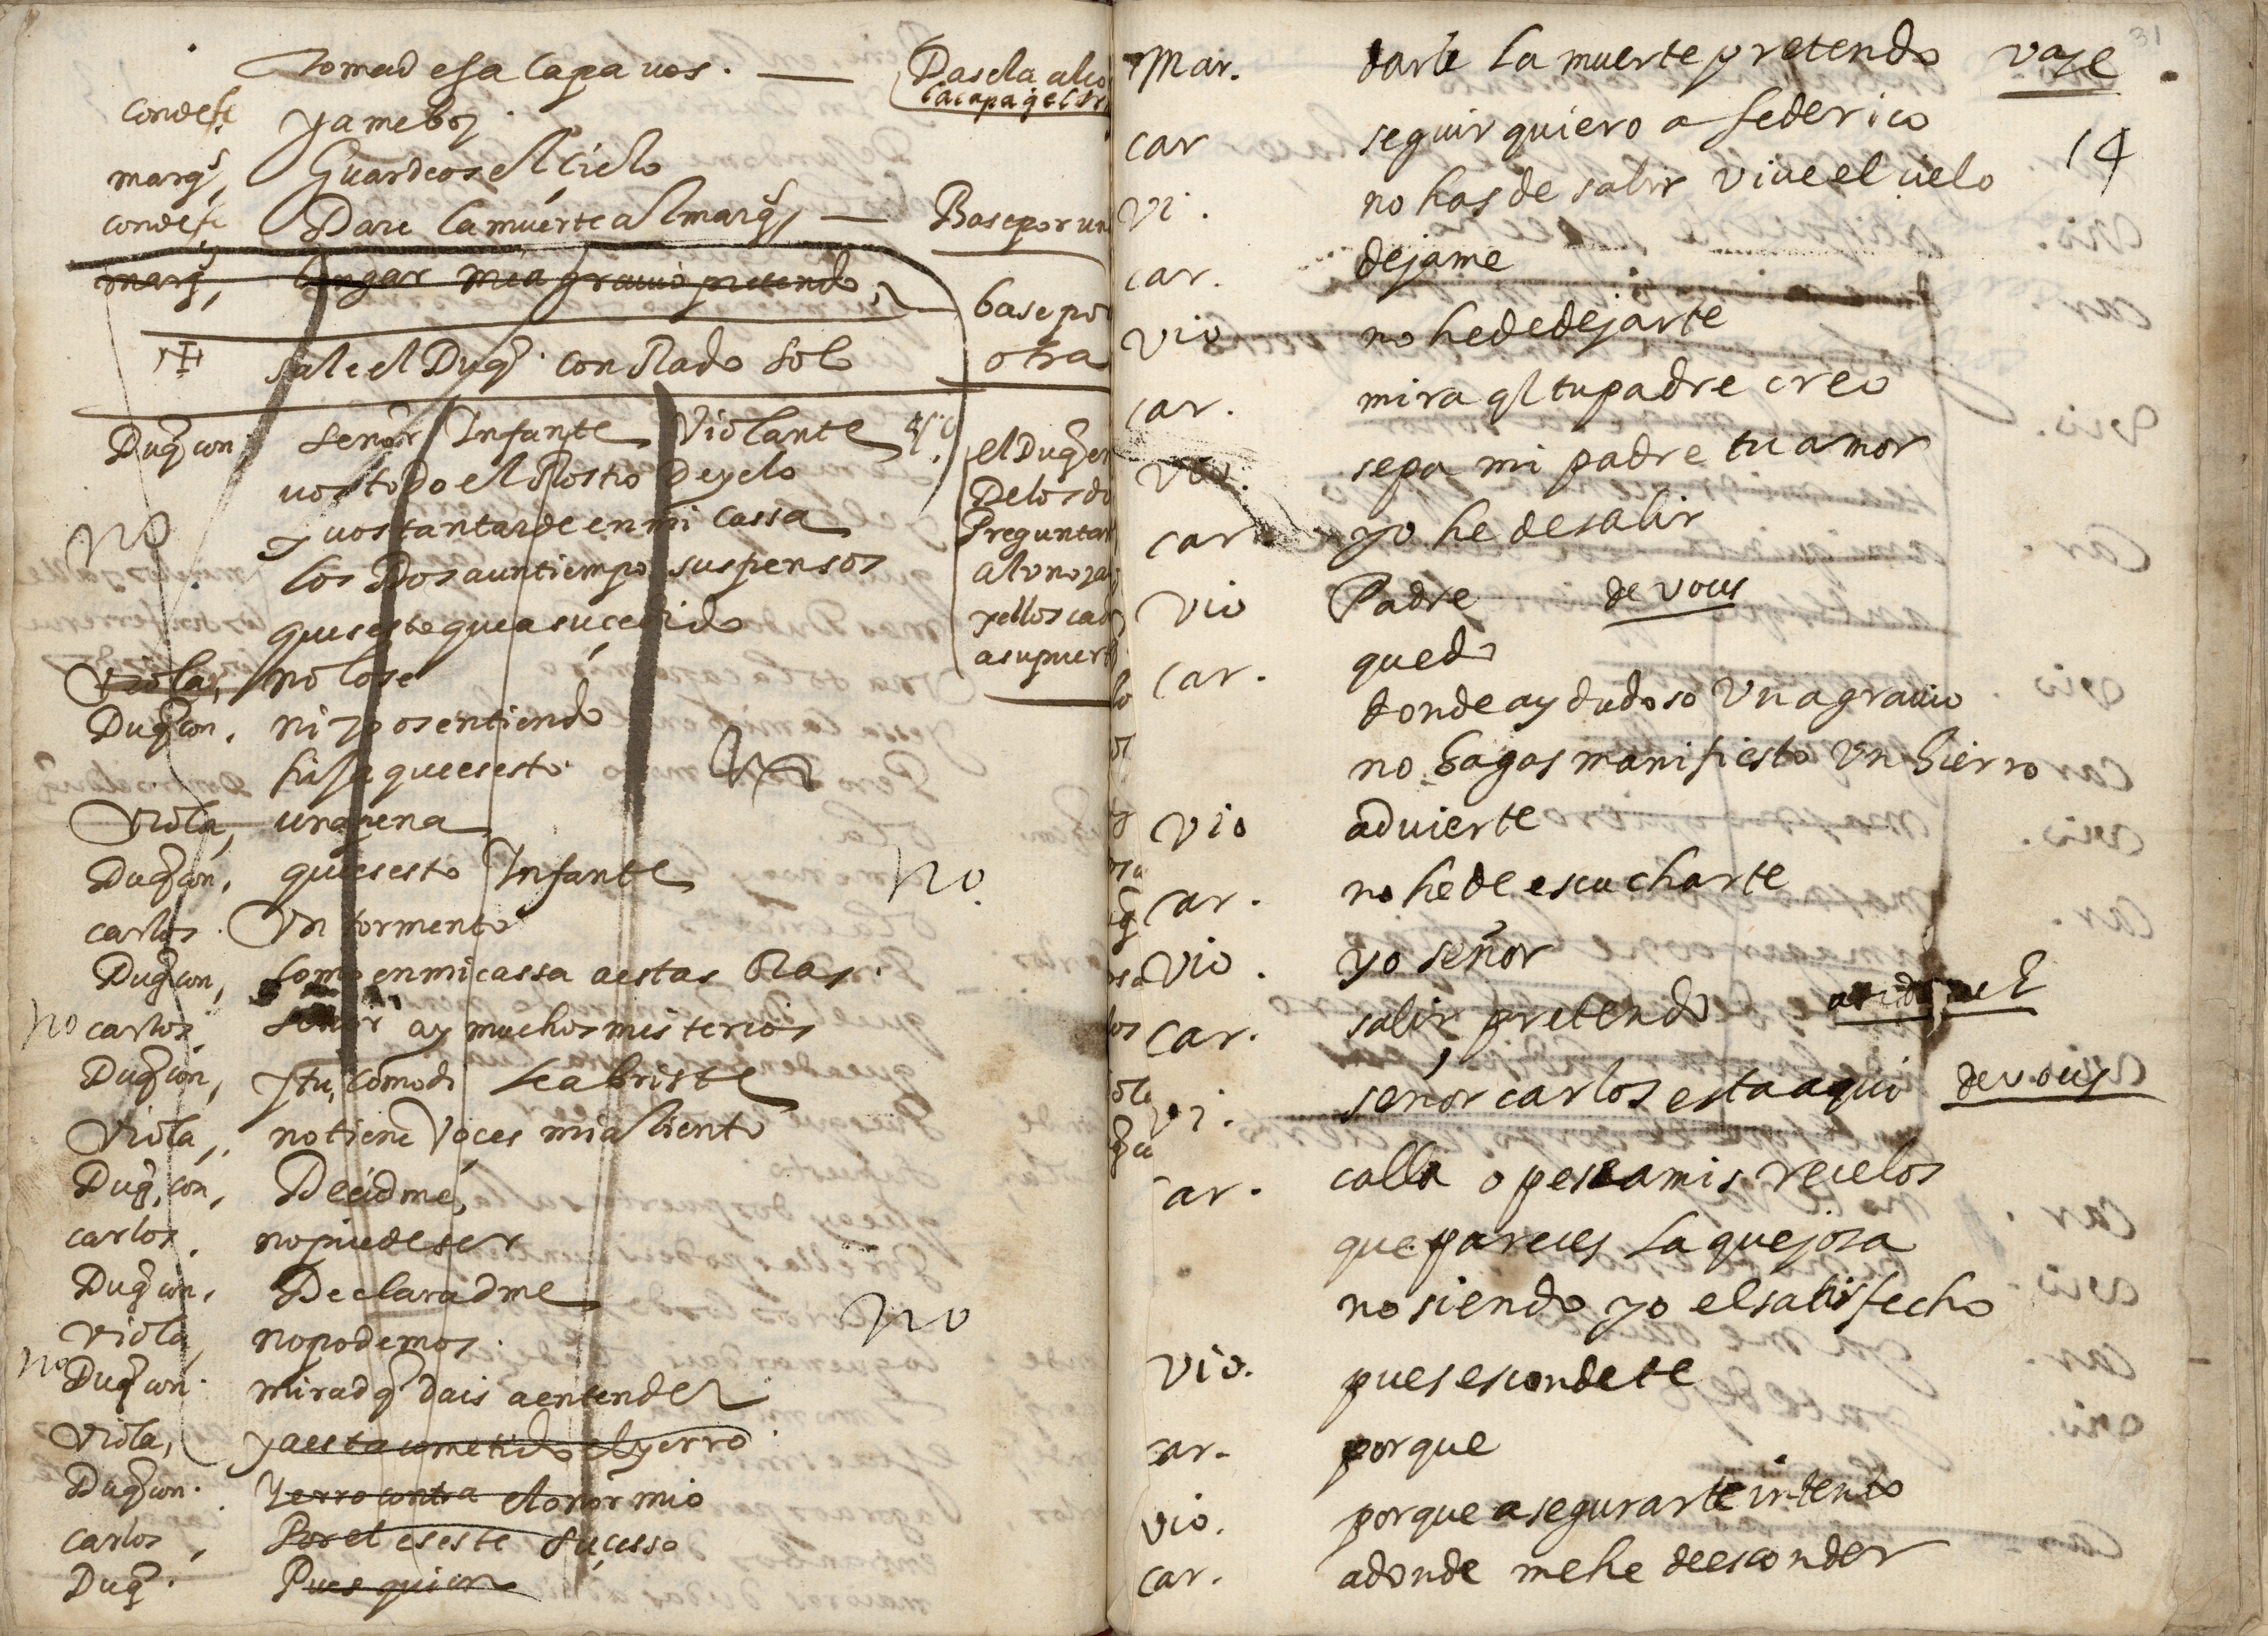 Tomad esa capa vos. — Dasela al co
la capa q̃ el
Condes. ya me boy.
marqs. Guardeos el cielo
condes. Dare la muerte al marqs, — Base por un
marq, bengar mi agrauio pretendo, base por
otra
sale el Duq̃. con Rado solo
Duq̃ con señor Infante Violante
vos todo el Rostro de yelo
y vos tan tarde en mi cassa
no
los Dos a un tiempo suspensos
que es este que a sucedido
el Duq̃ en
De los do
Preguntar
al vno ya
y ellos ca
a su puert
Viola, no lo se
Duq̃ con, ni yo os entiendo
hija que es esto.
Viola, una pena
Duq̃ con, que es esto Infante no.
carlos. Vn tormento
Duq̃ con, como en mi cassa a estas oras.
no carlos. señor ay muchos misterios
Duq̃ con, y tu, como di le abriste
Viola, no tiene voçes mi aliento
Duq̃ con, Decidme,
carlos. no puede ser
Duq̃ con, Declaradme
viola, no podemos. no
no Duq̃ con. mirad q̃ dais a entender
Viola, ya esta cometido el yerro.
Duq̃ con. Yerro contra el onor mio
carlos, Por el es este suçesso
Duq̃. Pues quien
31
Mar. darle la muerte pretendo vase
car seguir quiero a federico 14
vi. no has de salir viue el cielo
car. dejame
vio no he de dejarte
car. mira ql tu padre creo
vio. sepa mi padre tu amor
car. yo he de salir
vio Padre de vous
car. quedo
donde ay dudoso Vn agrauio
no hagas manifiesto Vn hierro
vio aduierte
car. no he de escucharte
vio. yo señor
car. salir pretendo
vi. señor carlos esta aqui de vous
car. calla o pese a mis recelos
que pareces la quejosa
no siendo yo el satisfecho
vio. pues escondete
car. porque
vio. porque asegurarte intento
car. adonde me he de esconder